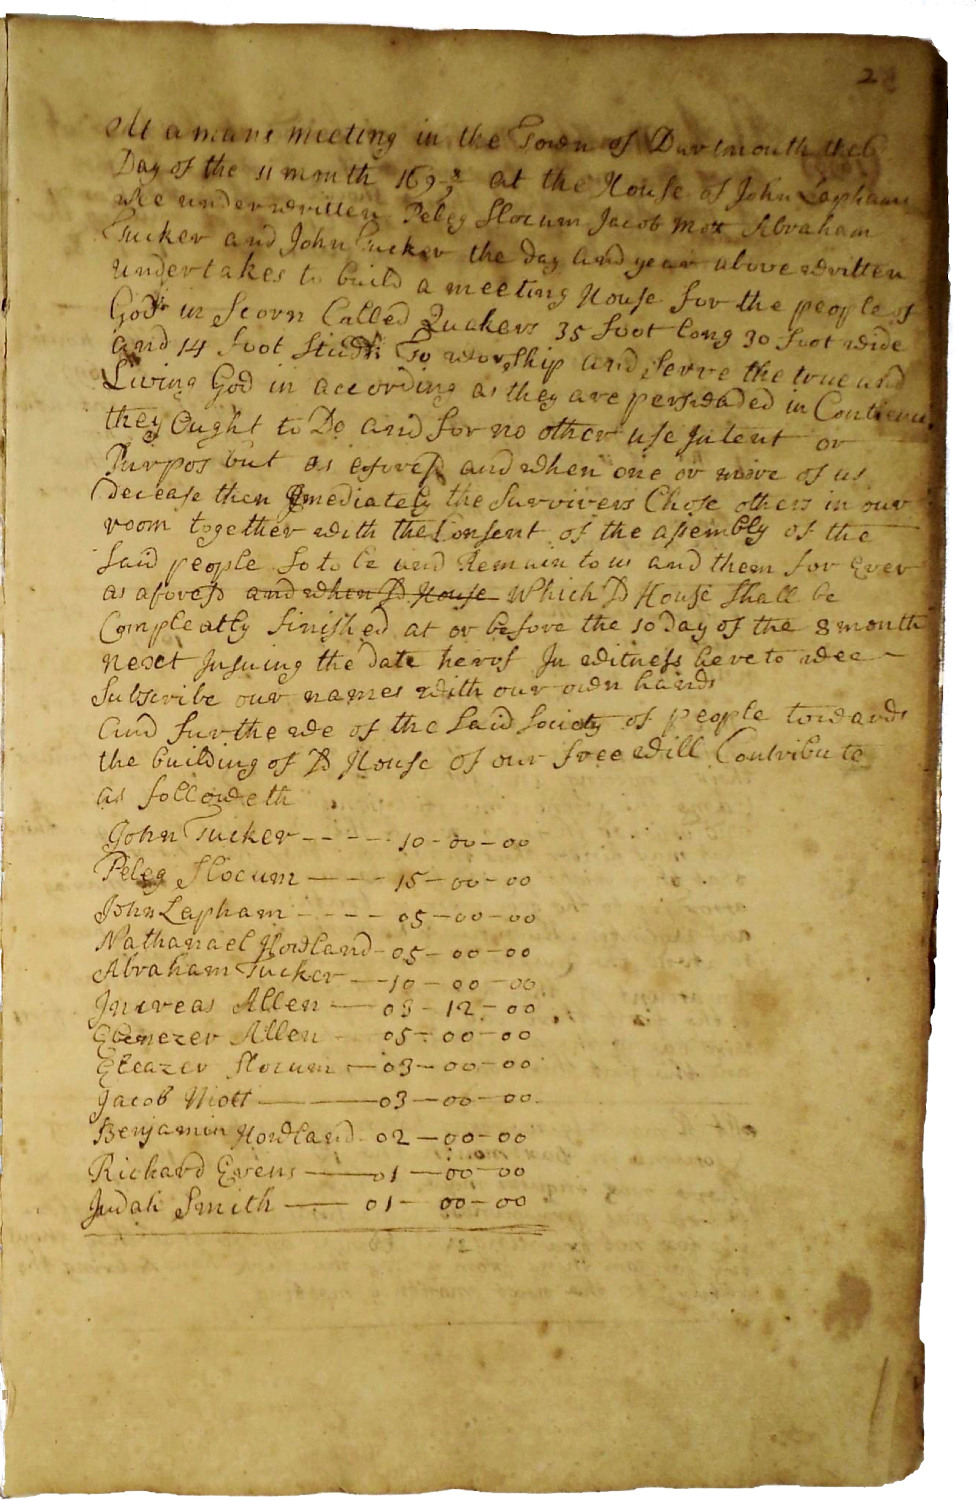 2
At a mans meeting in the Town of Dartmouth the 6
Day of the 11 month 1698/9 at the House of John Lapham
We underwritten Peleg Slocum Jacob Mott Abraham
Tucker and John Tucker the day and year above written
undertakes to build a meeting House for the people of
God in Scorn Called Quakers 35 foot long 30 foot wide
and 14 foot Studs To worship and serve the true and
Living God in according as they are perswaded in Contience
they Ought to Do and for no other use Intent or
Purpos but as aforesd and when one or more of us
decease then Imediately the Survivers Chose others in our
room together with the Consent of the assembly of the
said people so to be and Remain to us and them for Ever
as aforesd and when sd House which sd House shall be
Compleatly finished at or before the 10 Day of the 8 month
next Insuing the date herof In witness hereto wee
Subscribe our names with our own hands
And furthe we of the said Society of people towards
the building of sd House of our free will Contribute
as followeth
John Tucker - - - - 10 - 00 - 00
Peleg Slocum - - - 15 - 00 - 00
John Lapham - - - - 05 - 00 - 00
Nathanael Howland - 05 - 00 - 00
Abraham Tucker - - 10 - 00 - 00
Increas Allen - 03 - 12 - 00
Ebenezer Allen - 05 - 00 - 00
Eleazer Slocum - 03 - 00 - 00
Jacob Mott - 03 - 00 - 00
Benjamin Howland - 02 - 00 - 00
Richard Evens - 01 - 00 - 00
Judah Smith - 01 - 00 - 00